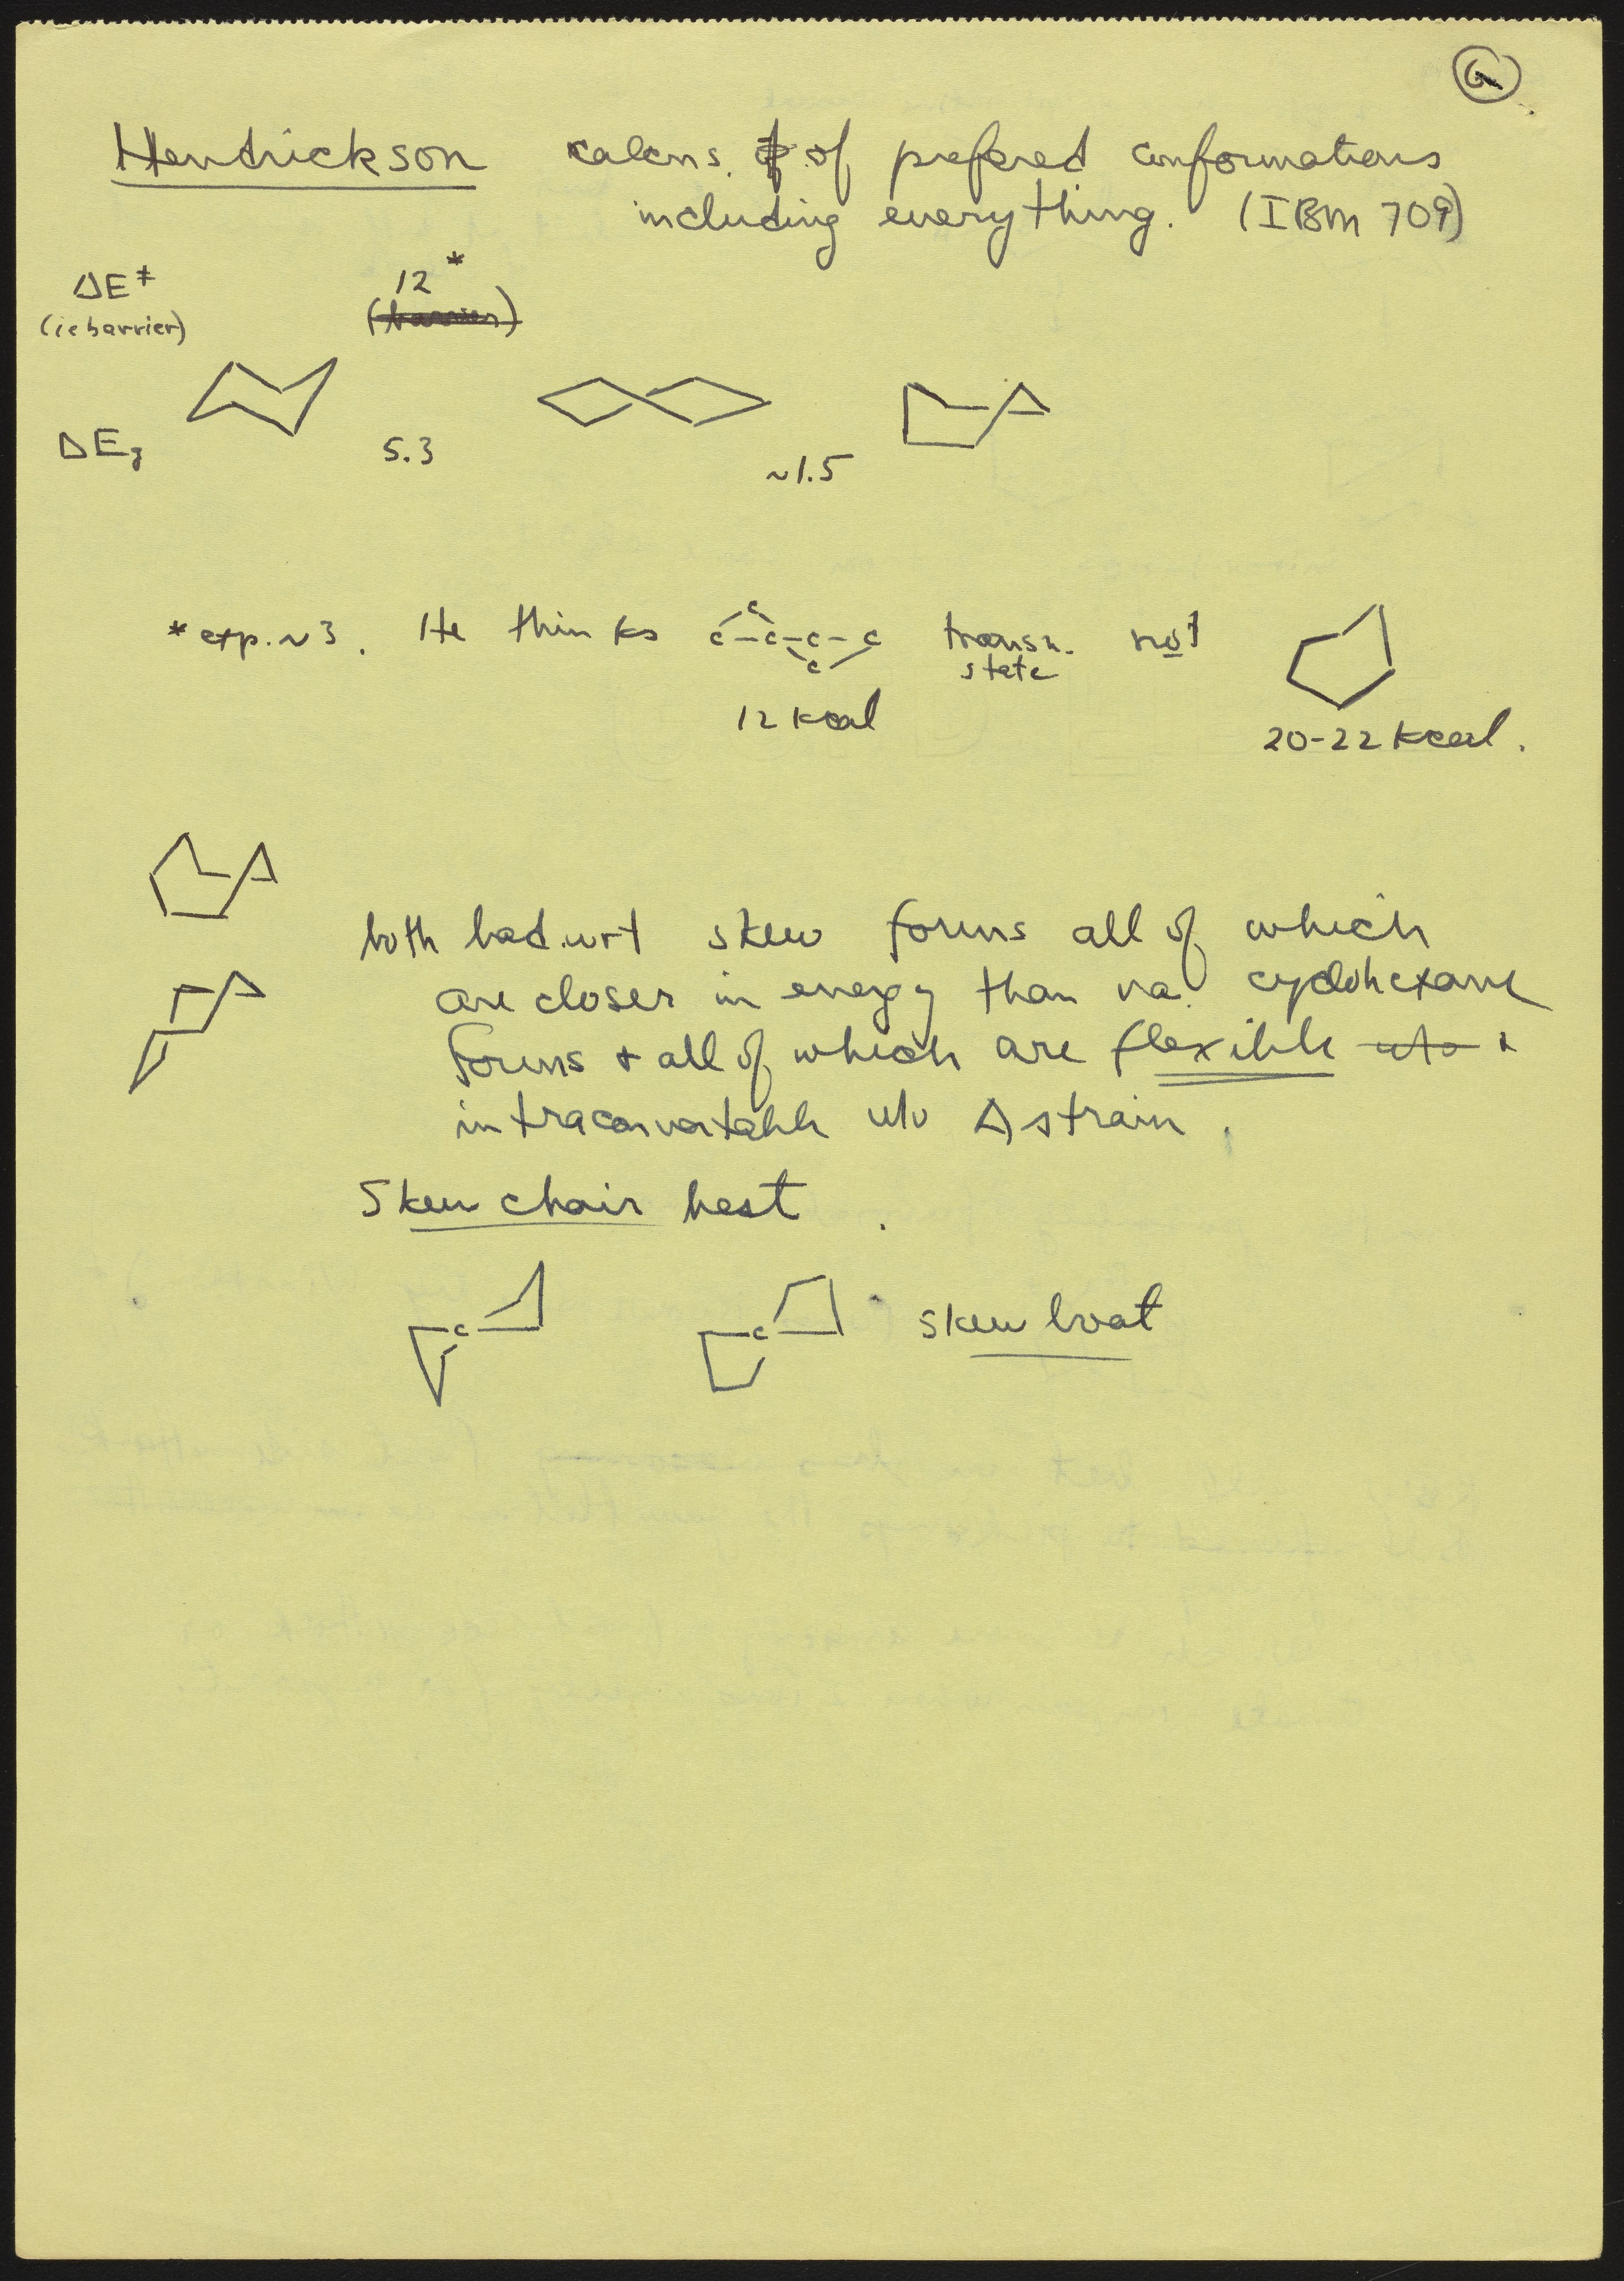 Hendrickson calcns. of of prefered conformations
including everything. (IBM 709)
ΔE‡ 12 *
(ie barrier) (barrier)
ΔE 5.3 ~1.5
*exp. ~3. He thinks c-c-c-c transn. not
c c state
12 kcal 20-22 kcal.
both bad wrt skew forms all of which
are closer in energy than cyclohexane
forms + all of which are flexible w/o &
intraconvertable w/o Δ strain.
Skew chair best.
c c skew boat